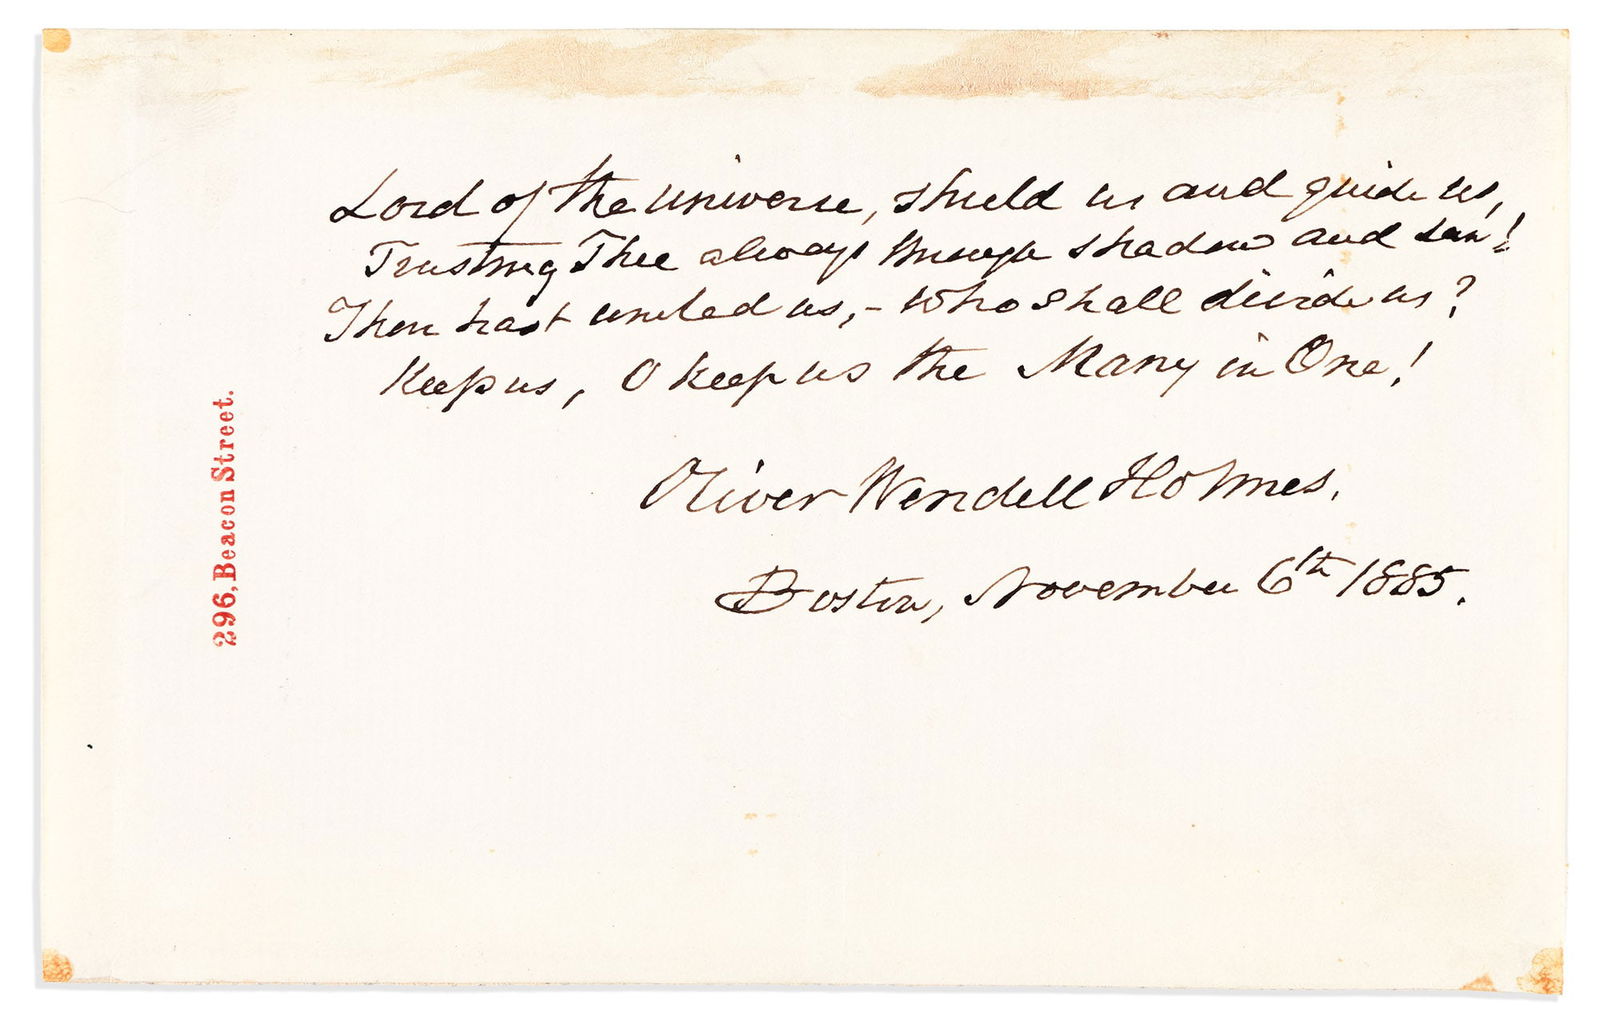 Lord of the universe, shield us and guide us,
Trusting Thee always through shadow and sun!
Thou hast united us, – who shall divide us?
Keep us, O keep us the Many in One!
Oliver Wendell Holmes.
Boston, November 6th 1885.
296, Beacon Street.